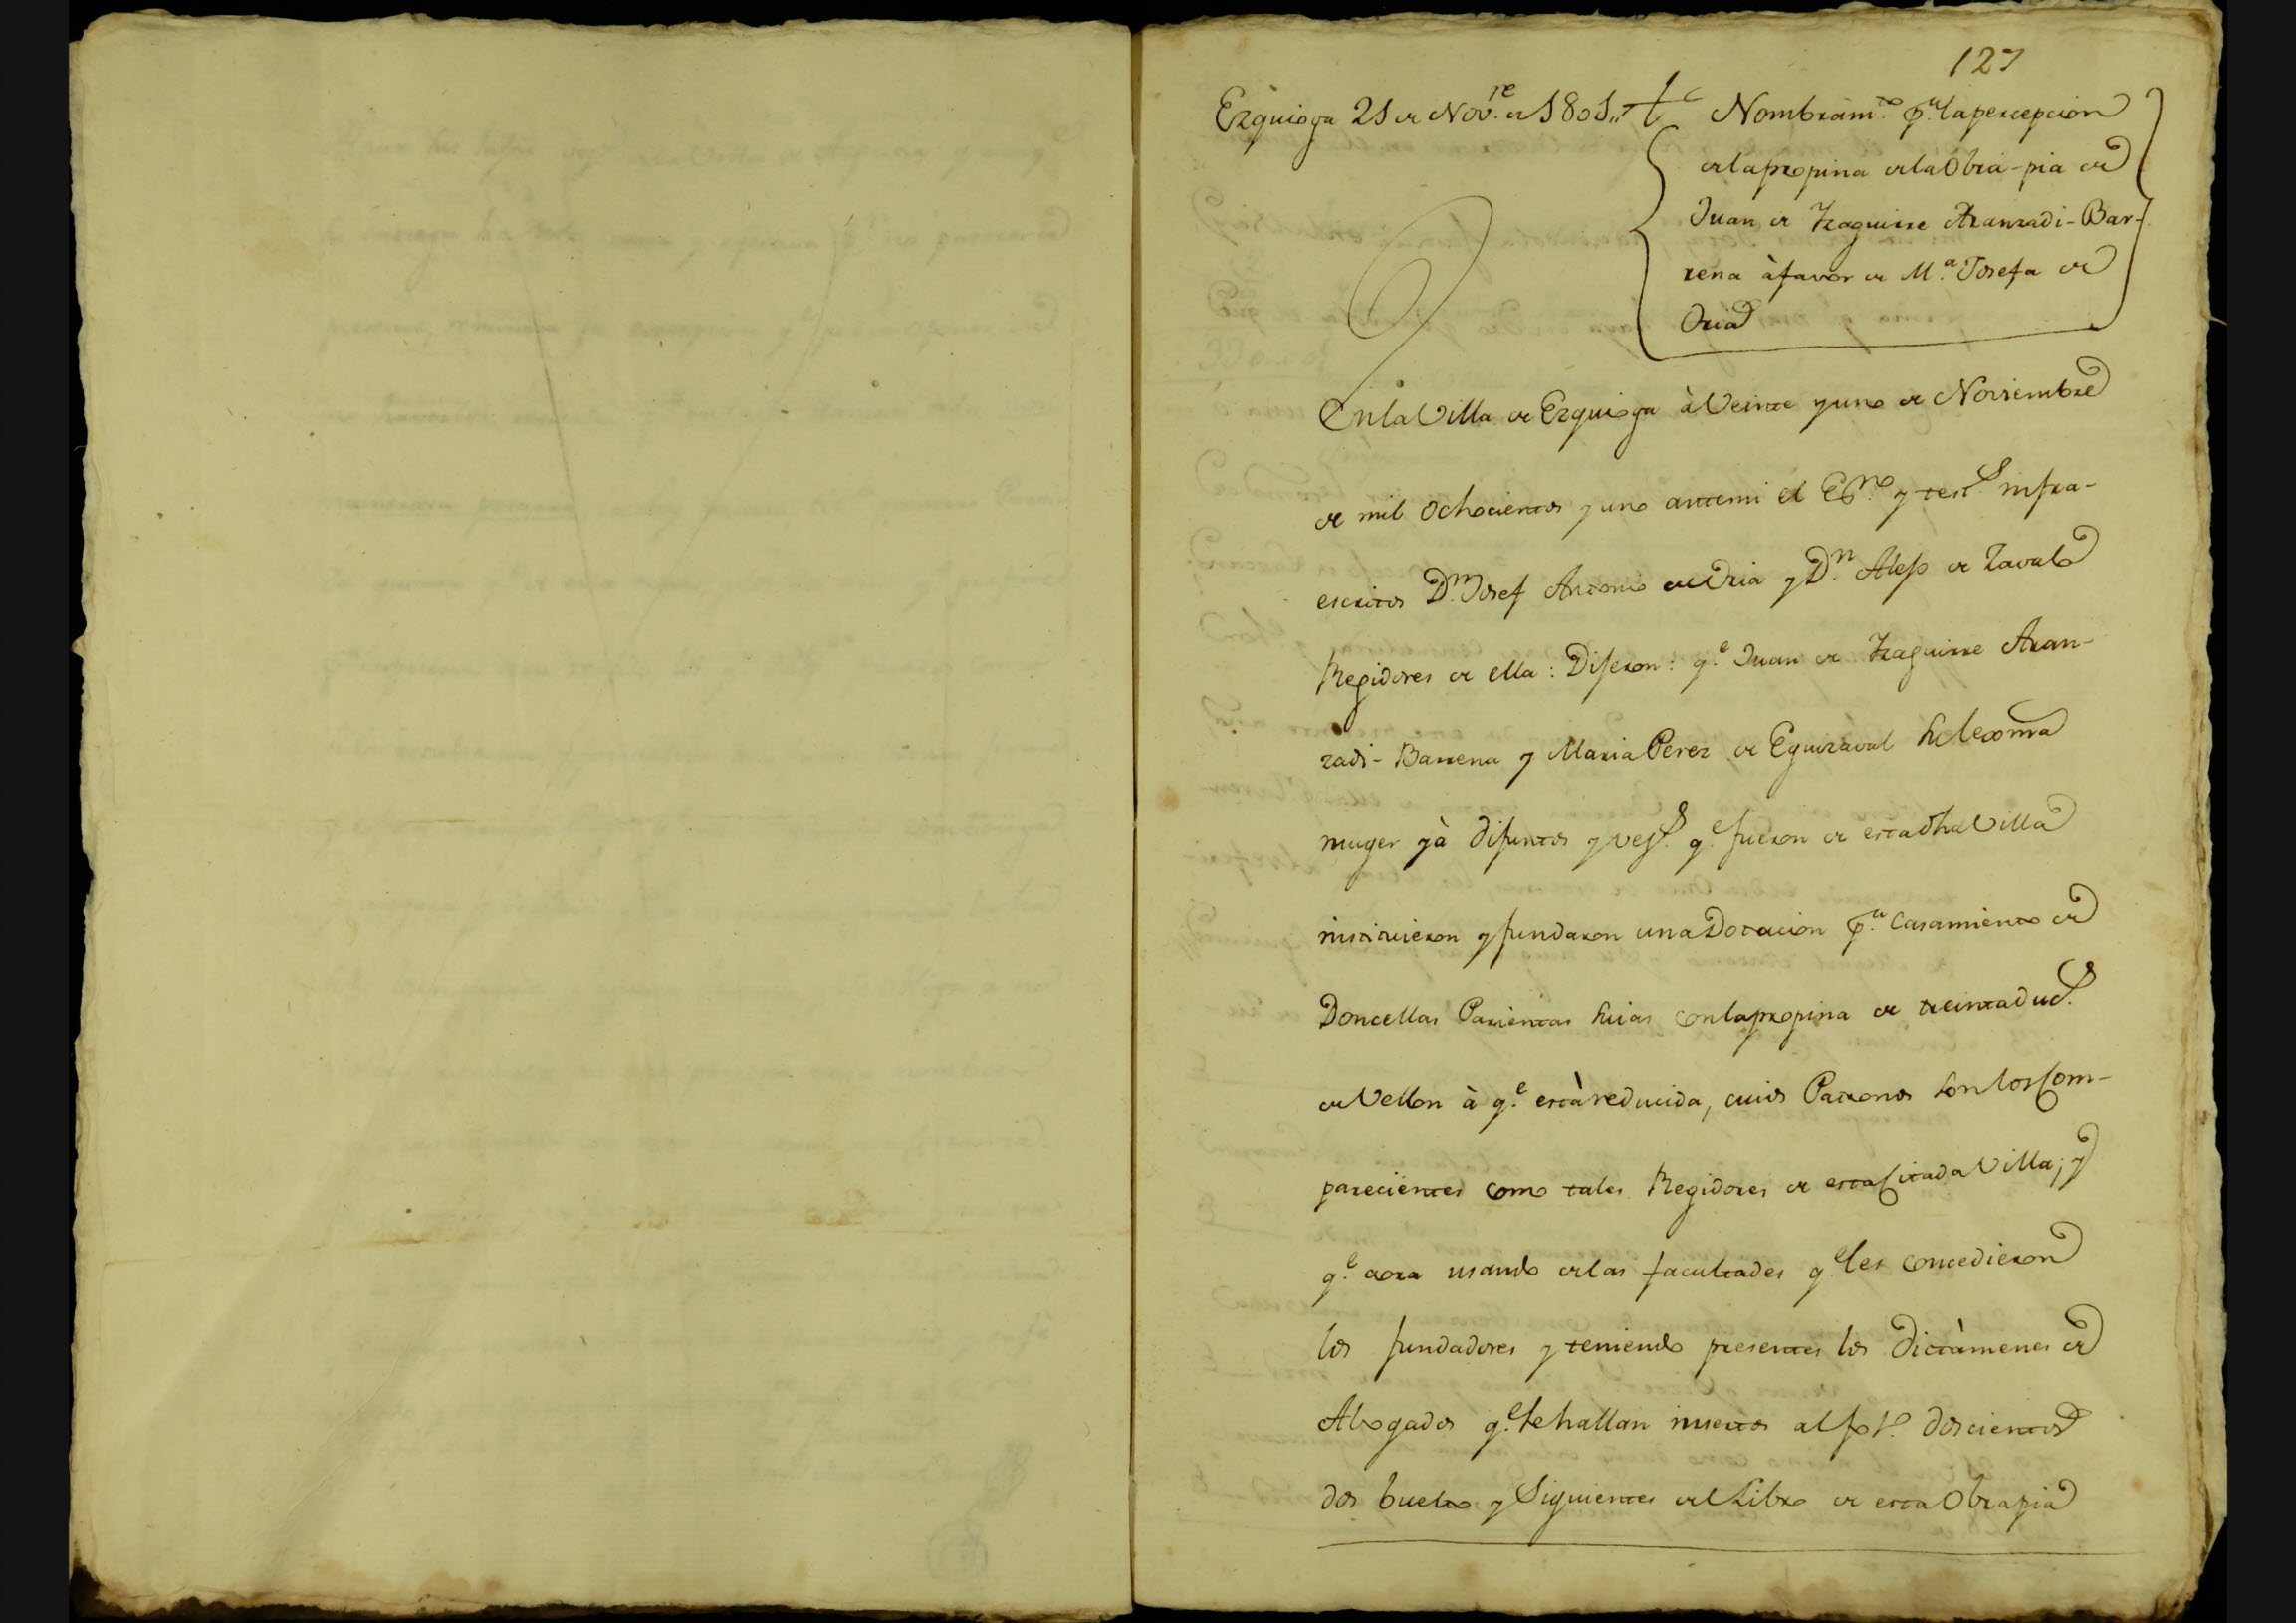 127
Ezquioga 21 de Nov.re de 1801,, Nombram.to p.a la percepcion
de la propina de la Obra-pia de
Juan de Yzaguirre Aranzadi-Bar-
rena à favor de M.a Josefa de
Oria
En la Villa de Ezquioga à Veinte y uno de Noviembre
de mil ochocientos y uno ante mi el Es.no y test.s infra-
escritos D.n Josef Antonio de Oria y D.n Alejo de Zavalo
Regidores de ella: Dijeron: q.e Juan de Yzaguirre Aran-
zadi-Barrena y Maria Perez de Eguizaval su lexma
muger yà difuntos y vej.s q.e fueron de esta dha Villa
instituieron y fundaron una Dotacion p.a Casamiento de
Doncellas Parientas suias con la propina de treinta duc.s
de Vellon à q.e està reducida, cuios Patronos son los Com-
parecientes como tales Regidores de esta Citada Villa; y
q.e aora usando de las facultades q.e les concedieron
los fundadores y teniendo presentes los Dictàmenes de
Abogados q.e se hallan insertos al fol.o doscientos
dos buelto y Siguientes del Libro de esta Obrapia